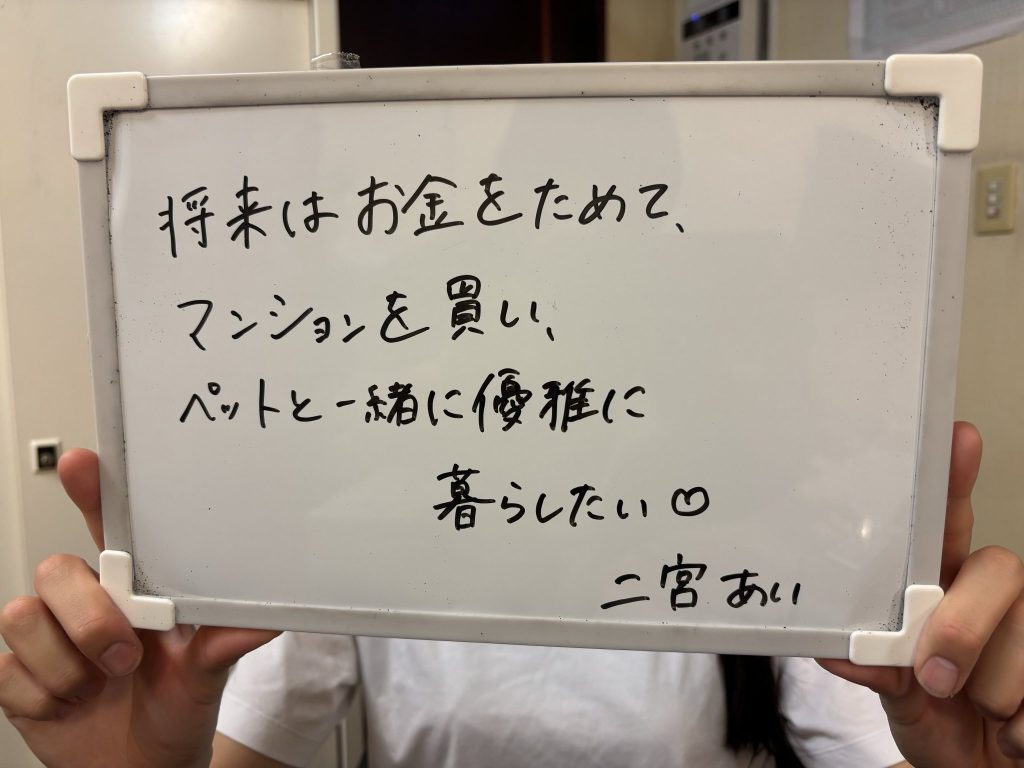 将来はお金をためて、
マンションを買い、
ペットと一緒に優雅に
暮らしたい♡
二宮あい